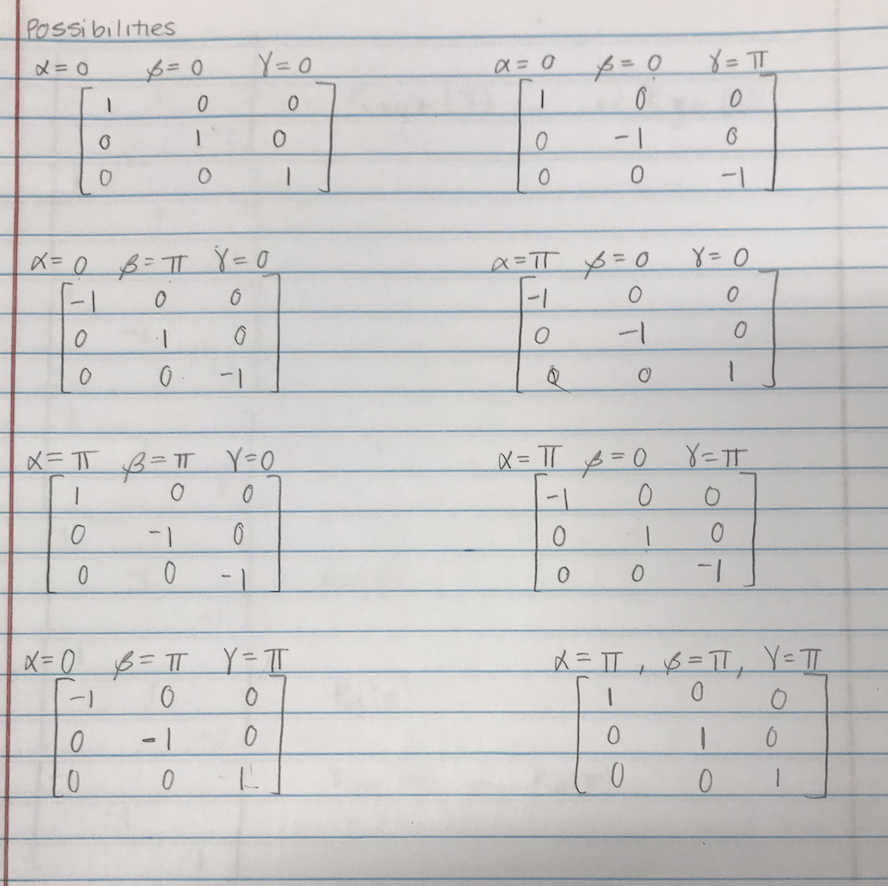 Possibilities
α=0 β=0 γ=0
1 0 0
0 1 0
0 0 1
α=0 β=0 γ=π
1 0 0
0 -1 0
0 0 -1
α=0 β=π γ=0
-1 0 0
0 1 0
0 0 -1
α=π β=0 γ=0
-1 0 0
0 -1 0
0 0 1
α=π β=π γ=0
1 0 0
0 -1 0
0 0 -1
α=π β=0 γ=π
-1 0 0
0 1 0
0 0 -1
α=0 β=π γ=π
-1 0 0
0 -1 0
0 0 1
α=π, β=π, γ=π
1 0 0
0 1 0
0 0 1